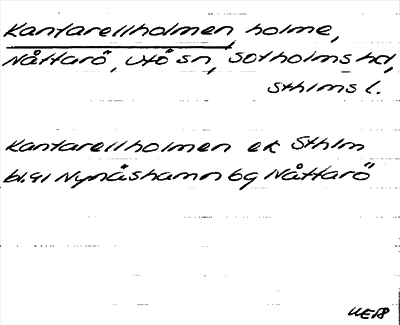 Kantarellholmen, holme,
Nåttarö, Utö sn, Sotholms hd,
Sthlms l.
Kantarellholmen ek Sthlm
bl. 91 Nynäshamn bg Nåttarö